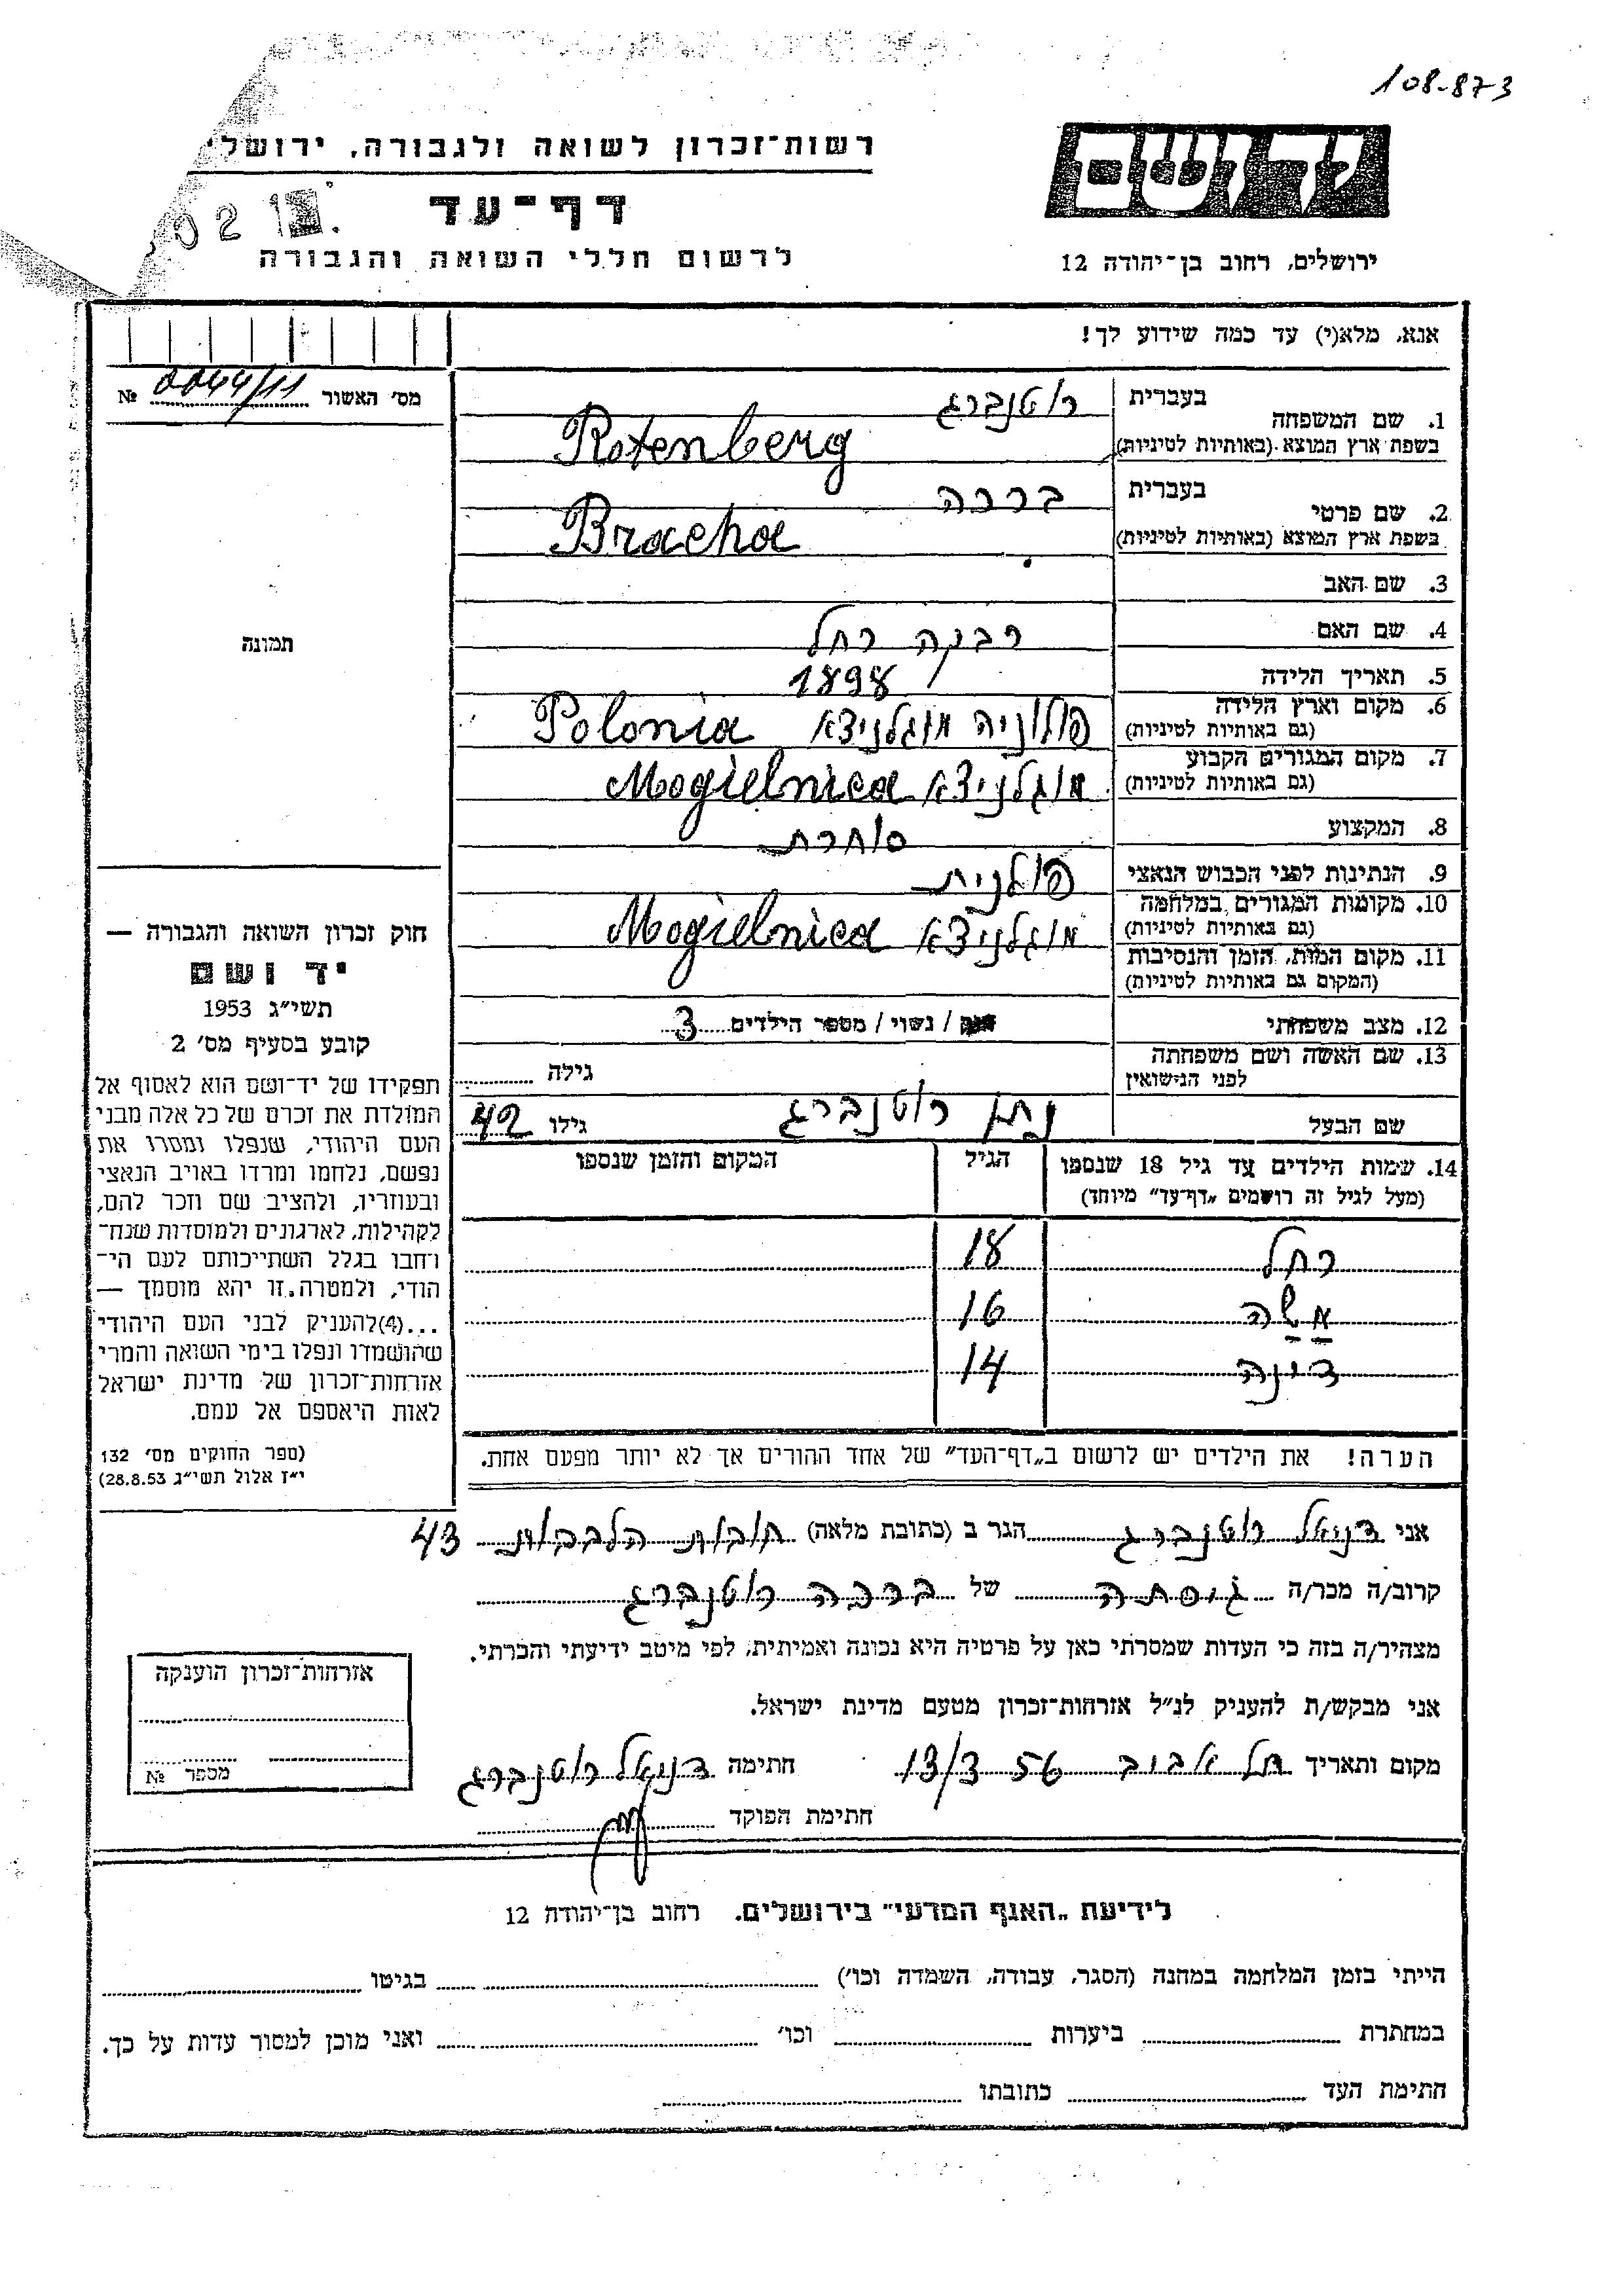 108-873
רשות־זכרון לשואה ולגבורה, ירושל
יד ושם
דף־עד
לרשום חללי השואה והגבורה
ירושלים, רחוב בן־יהודה 12
אנא, מלא(י) עד כמה שידוע לך!
מס׳ האשור 0044/11 №
1. שם המשפחה בעברית רוטנברג
בשפת ארץ המוצא (באותיות לטיניות) Rotenberg
2. שם פרטי בעברית ברכה
בשפת ארץ המוצא (באותיות לטיניות) Bracha
3. שם האב
4. שם האם רבקה רחל
5. תאריך הלידה 1898
6. מקום וארץ הלידה פולוניה מוגלניצא Polonia
(גם באותיות לטיניות)
7. מקום המגורים הקבוע מוגלניצא Mogielnica
(גם באותיות לטיניות)
8. המקצוע סוחרת
9. הנתינות לפני הכבוש הנאצי פולנית
10. מקומות המגורים במלחמה מוגלניצא Mogielnica
(גם באותיות לטיניות)
11. מקום המות, הזמן והנסיבות
(המקום גם באותיות לטיניות)
12. מצב משפחתי / נשוי / מספר הילדים 3
13. שם האשה ושם משפחתה גילה
לפני הנישואין
שם הבעל נתן רוטנברג גילו 42
14. שמות הילדים עד גיל 18 שנספו הגיל המקום והזמן שנספו
(מעל לגיל זה רושמים „דף־עד״ מיוחד)
רחל 18
מַשַה 16
דינה 14
הערה! את הילדים יש לרשום ב„דף־העד״ של אחד ההורים אך לא יותר מפעם אחת.
תמונה
חוק זכרון השואה והגבורה —
יד ושם
תשי״ג 1953
קובע בסעיף מס׳ 2
תפקידו של יד־ושם הוא לאסוף אל
המולדת את זכרם של כל אלה מבני
העם היהודי, שנפלו ומסרו את
נפשם, נלחמו ומרדו באויב הנאצי
ובעוזריו, ולהציב שם וזכר להם,
לקהילות, לארגונים ולמוסדות שנח־
רחבו בגלל השתייכותם לעם הי־
הודי, ולמטרה זו יהא מוסמך —
...(4) להעניק לבני העם היהודי
שהושמדו ונפלו בימי השואה והמרי
אזרחות־זכרון של מדינת ישראל
לאות היאספם אל עמם.
(ספר החוקים מס׳ 132
י״ז אלול תשי״ג 28.8.53)
אני דניאל רוטנברג הגר ב (כתובת מלאה) חובות הלבבות 43
קרוב/ה מכר/ה גיסתה של ברכה רוטנברג
מצהיר/ה בזה כי העדות שמסרתי כאן על פרטיה היא נכונה ואמיתית, לפי מיטב ידיעתי והכרתי.
אני מבקש/ת להעניק לנ״ל אזרחות־זכרון מטעם מדינת ישראל.
מקום ותאריך תל אביב 13/3 56 חתימה דניאל רוטנברג
חתימת הפוקד
אזרחות־זכרון הוענקה
מספר №
לידיעת „האגף המדעי״ בירושלים. רחוב בן־יהודה 12
הייתי בזמן המלחמה במחנה (הסגר, עבודה, השמדה וכו׳) בגיטו
במחתרת ביערות וכו׳ ואני מוכן למסור עדות על כך.
חתימת העד כתובתו